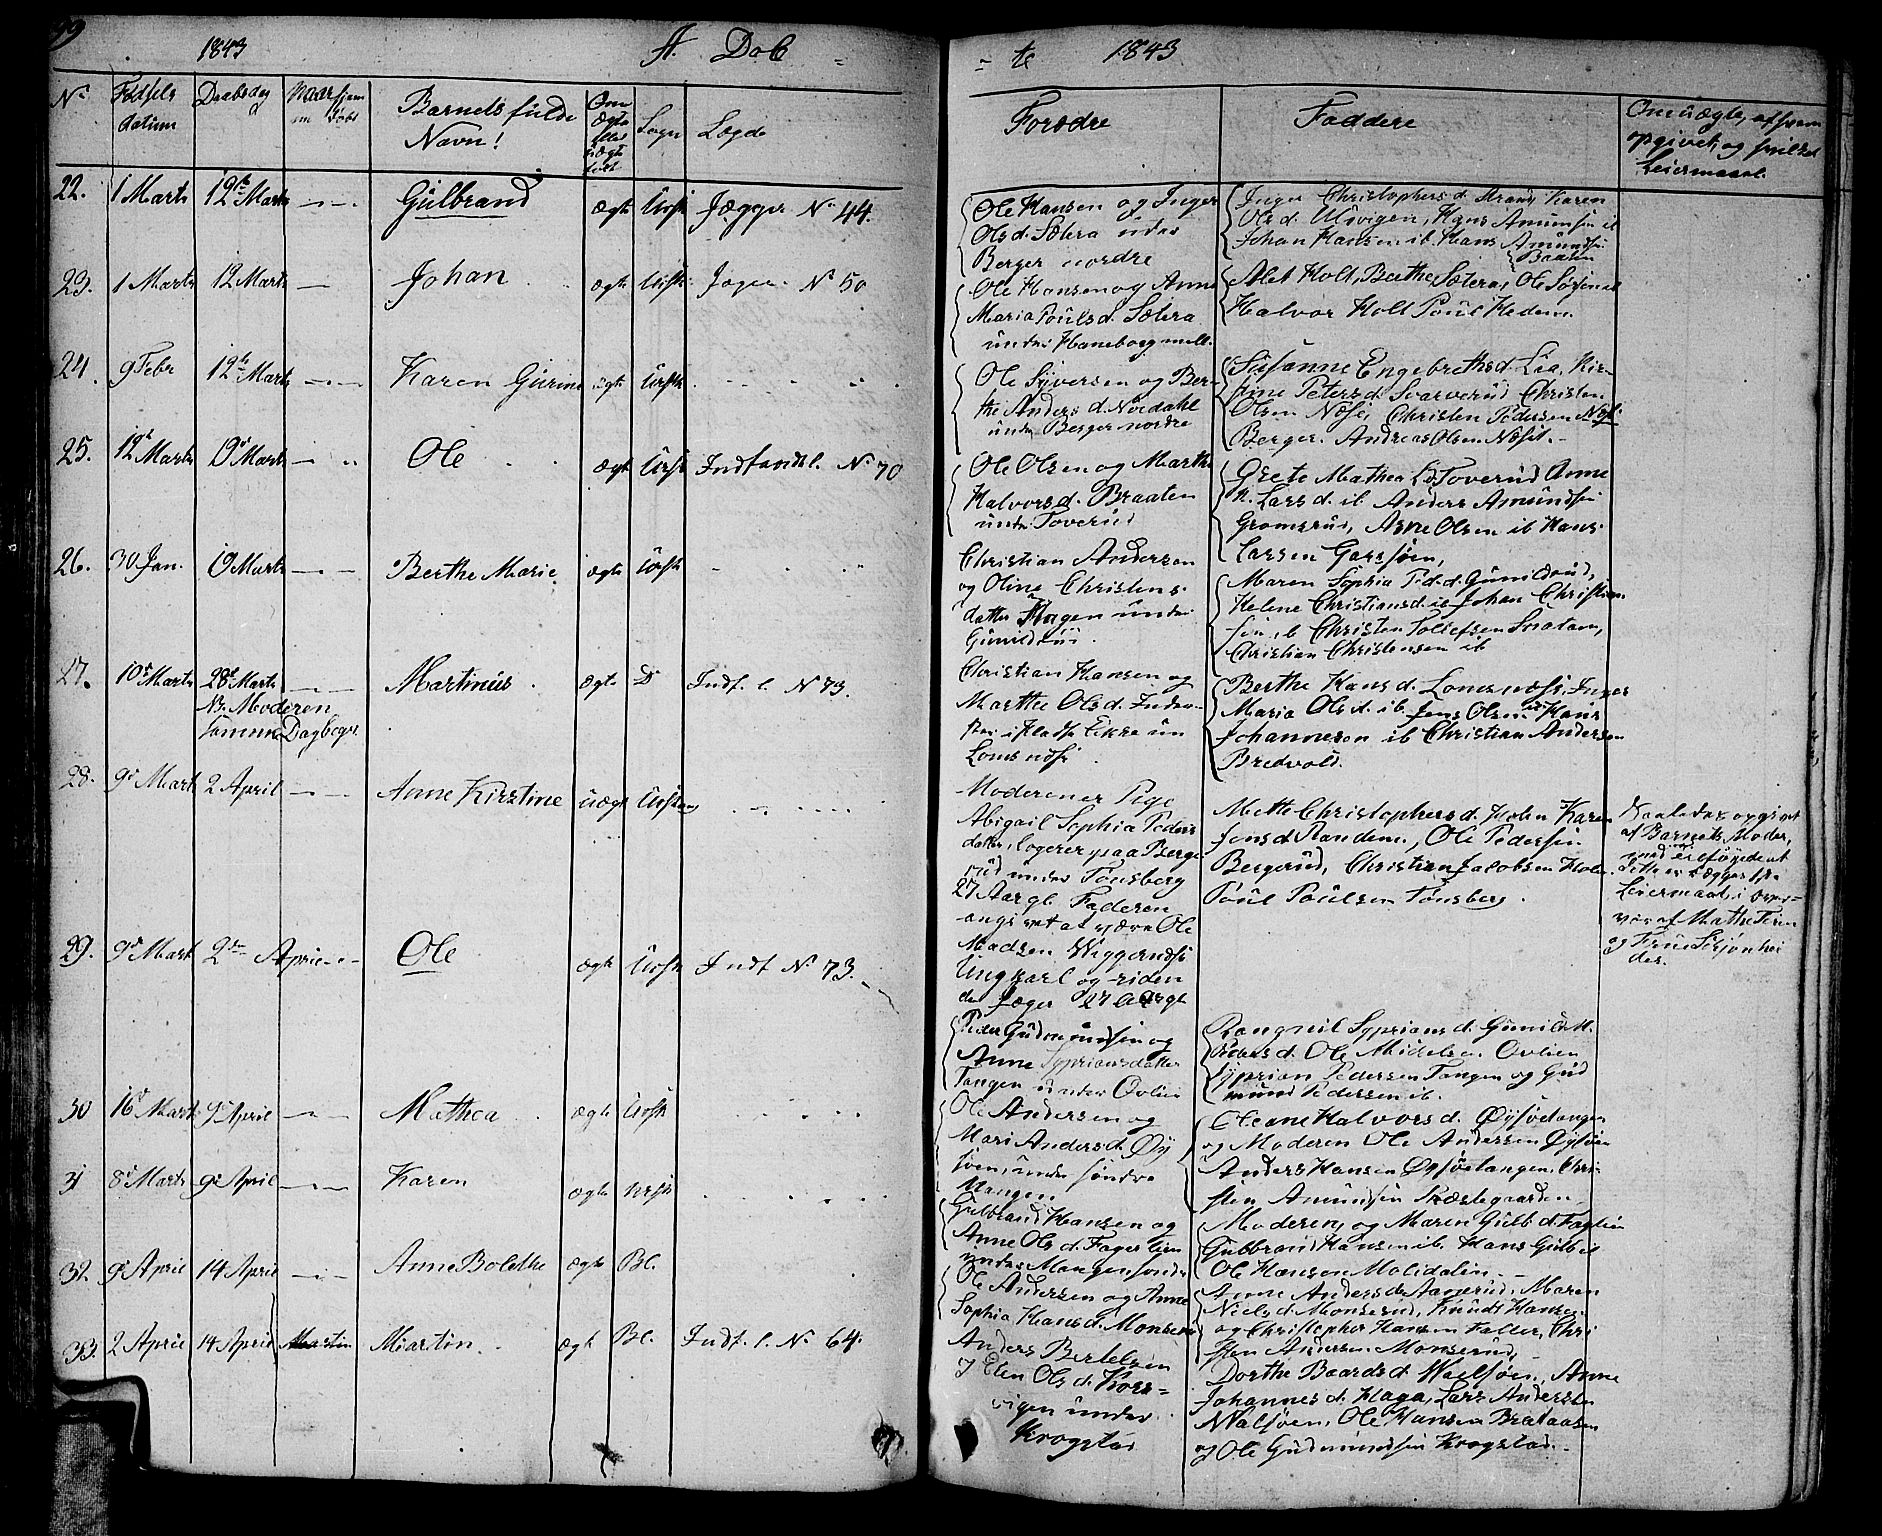 99
1843 A. Døb
- te 1843
No Fødsels datum Daabsdag Naar hjemmedøbt Barnets fulde Navn! Om Ægte eller uægte født Sogn Lægde
Forældre Faddere Om uægte, af hvem opgivet, og hvilket Leiermaal.
22. 1 Marts 12te Marts Gulbrand ægte Ursk Jæger No 44.
Ole Hansen og Inger
Olsd. Sætera under
Berger nordre
Inger Christophersd. Strand, Karen
Olsd. Ulvigen, Hans Amundsen ib
Johan Hansen ib. Hans Amundsen
Braaten
23. 1 Marts 12 Marts Johan ægte Ursk Jæger No 50
Ole Hansen og Anne
Maria Poulsd. Sætera
under Haneborg mell.
Alet Holt, Berthe Sætera, Ole
Halvor Holt Poul Hedem.
24. 9 Febr 12te Marts Karen Gurine ægte Ursk
Ole Syversen og Ber-
the Andersd. Nordahl
under Berger nordre
Susanne Engebrethsd. Lia, Kir-
stine Petersd. Svarverud Christen
Olsen Næse, Christen Pedersen
Berger. Andreas Olsen Næset.
25. 12te Marts 19 Marts Ole ægte Ursk Indfandtl. No 70
Ole Olsen og Marthe
Halvorsd. Braaten
under Toverud
Grete Mathea Ld Toverud Anne
K. Larsd. ib. Anders Amundsen
Gromsrud, Arne Olsen ib Hans
Larsen
26. 30 Jan. 19 Marts Berthe Marie ægte Ursk
Christian Andersen
og Oline Christens
datter Hagen under
Gunildrud
Maren Sophia Ped.d. Gunildrud,
Helene Christiansd. ib Johan Christian
sen ib Christen Tollefsen
Christian Christensen ib
27. 10d Marts 28d Marts Martinus ægte Do Indf. l. No 73.
NB. Moderen
samme Dag begr.
Christian Hansen og
Marthe Olsd. Inder-
sten i Pladse Ekra un
Lomsnæse
Berthe Hansd. Lomsnæse, Inger
Maria Olsd. ib. Jens Olsen ib Hans
Johannesen ib Christian Andersen
Bredvold.
28. 9d Marts 2 April Anne Kirstine uægte Ursk
Moderen er Pige
Abigail Sophia Peders
datter, logerer paa Berge
rud under Tønsberg
27 Aar gl. Faderen
angivet at være Ole
Madsen
Ungkarl og riden
de Jæger 27 Aar gl
Mette Christophersd. Holen Karen
Jensd Randem, Ole Pedersen
Bergerud, Christian Jacobsen Holen
Poul Poulsen Tønsberg.
Saaledes opgivet
af Barnets Moder,
med tilføiende at
dette er begges første
Leiermaal i over-
vær af
og
29. 9d Marts 2den April Ole ægte Ursk Indf No 73.
Peder Gudmundsen og
Anne Syprians datter
Tangen under Ovlien
Rangnil Syprians d. Gunild M.
Peders d. Ole Mickelsen Ovlien
Syprian Pedersen Tangen og Gud
mund Pedersen ib.
30 16d Marts 9d April Mathea ægte Ursk
Ole Andersen og
Mari Andersd. Øy
søen, under søndre
Mangen
Oleane Halvorsd. Øysøetangen
og Moderen Ole Andersen Øysøen
Anders Hansen Øysøetangen, Chri-
sten Amundsen Præstegaarden
31 8d Marts 9d April Karen ægte Ursk
Gulbrand Hansen og
Anne Olsd. Fagerlien
under Mangen søndre
Moderen, og Maren Gulb.d. Faglien
Gulbrand Hansen ib. Hans Gulb ib
Ole Hansen Molidalen
32. 9d April 14 April Anne Bolethe ægte Bl.
Ole Andersen og Anne
Sophia Hansd. Monserud
Anne Andersd. Aanerud, Maren
Nielsd. Monserud, Knudt Hansen
og Christopher Hansen Faller, Chri
sten Andersen Monserud,
33. 2 April 14 April Martin ægte Bl. Indf. l. No 64.
Anders Bertelsen
og Elen Olsd. Kors-
vigen under
Krogstad
Dorthe Baardsd. Waelsøen, Anne
Johannesd. Haga, Lars Andersen
Walsøen, Ole Hansen Brataasen
og Ole Gudmundsen Krogstad.